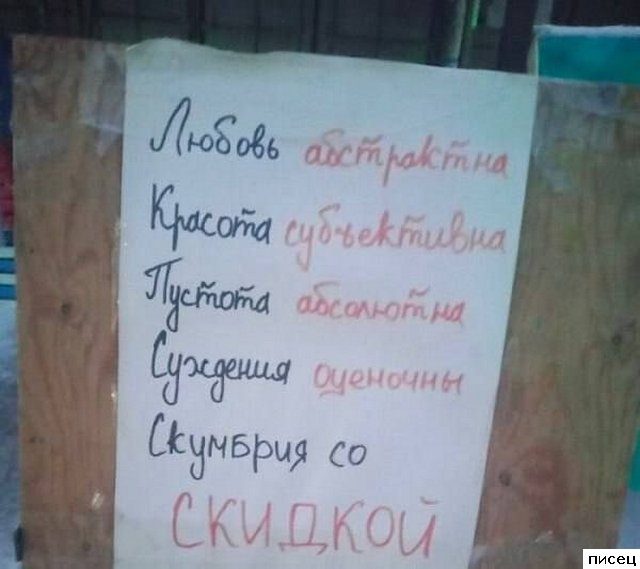 Любовь абстрактна
Красота субъективна
Пустота абсолютна
Суждения оценочны
Скумбрия со
СКИДКОЙ
писец